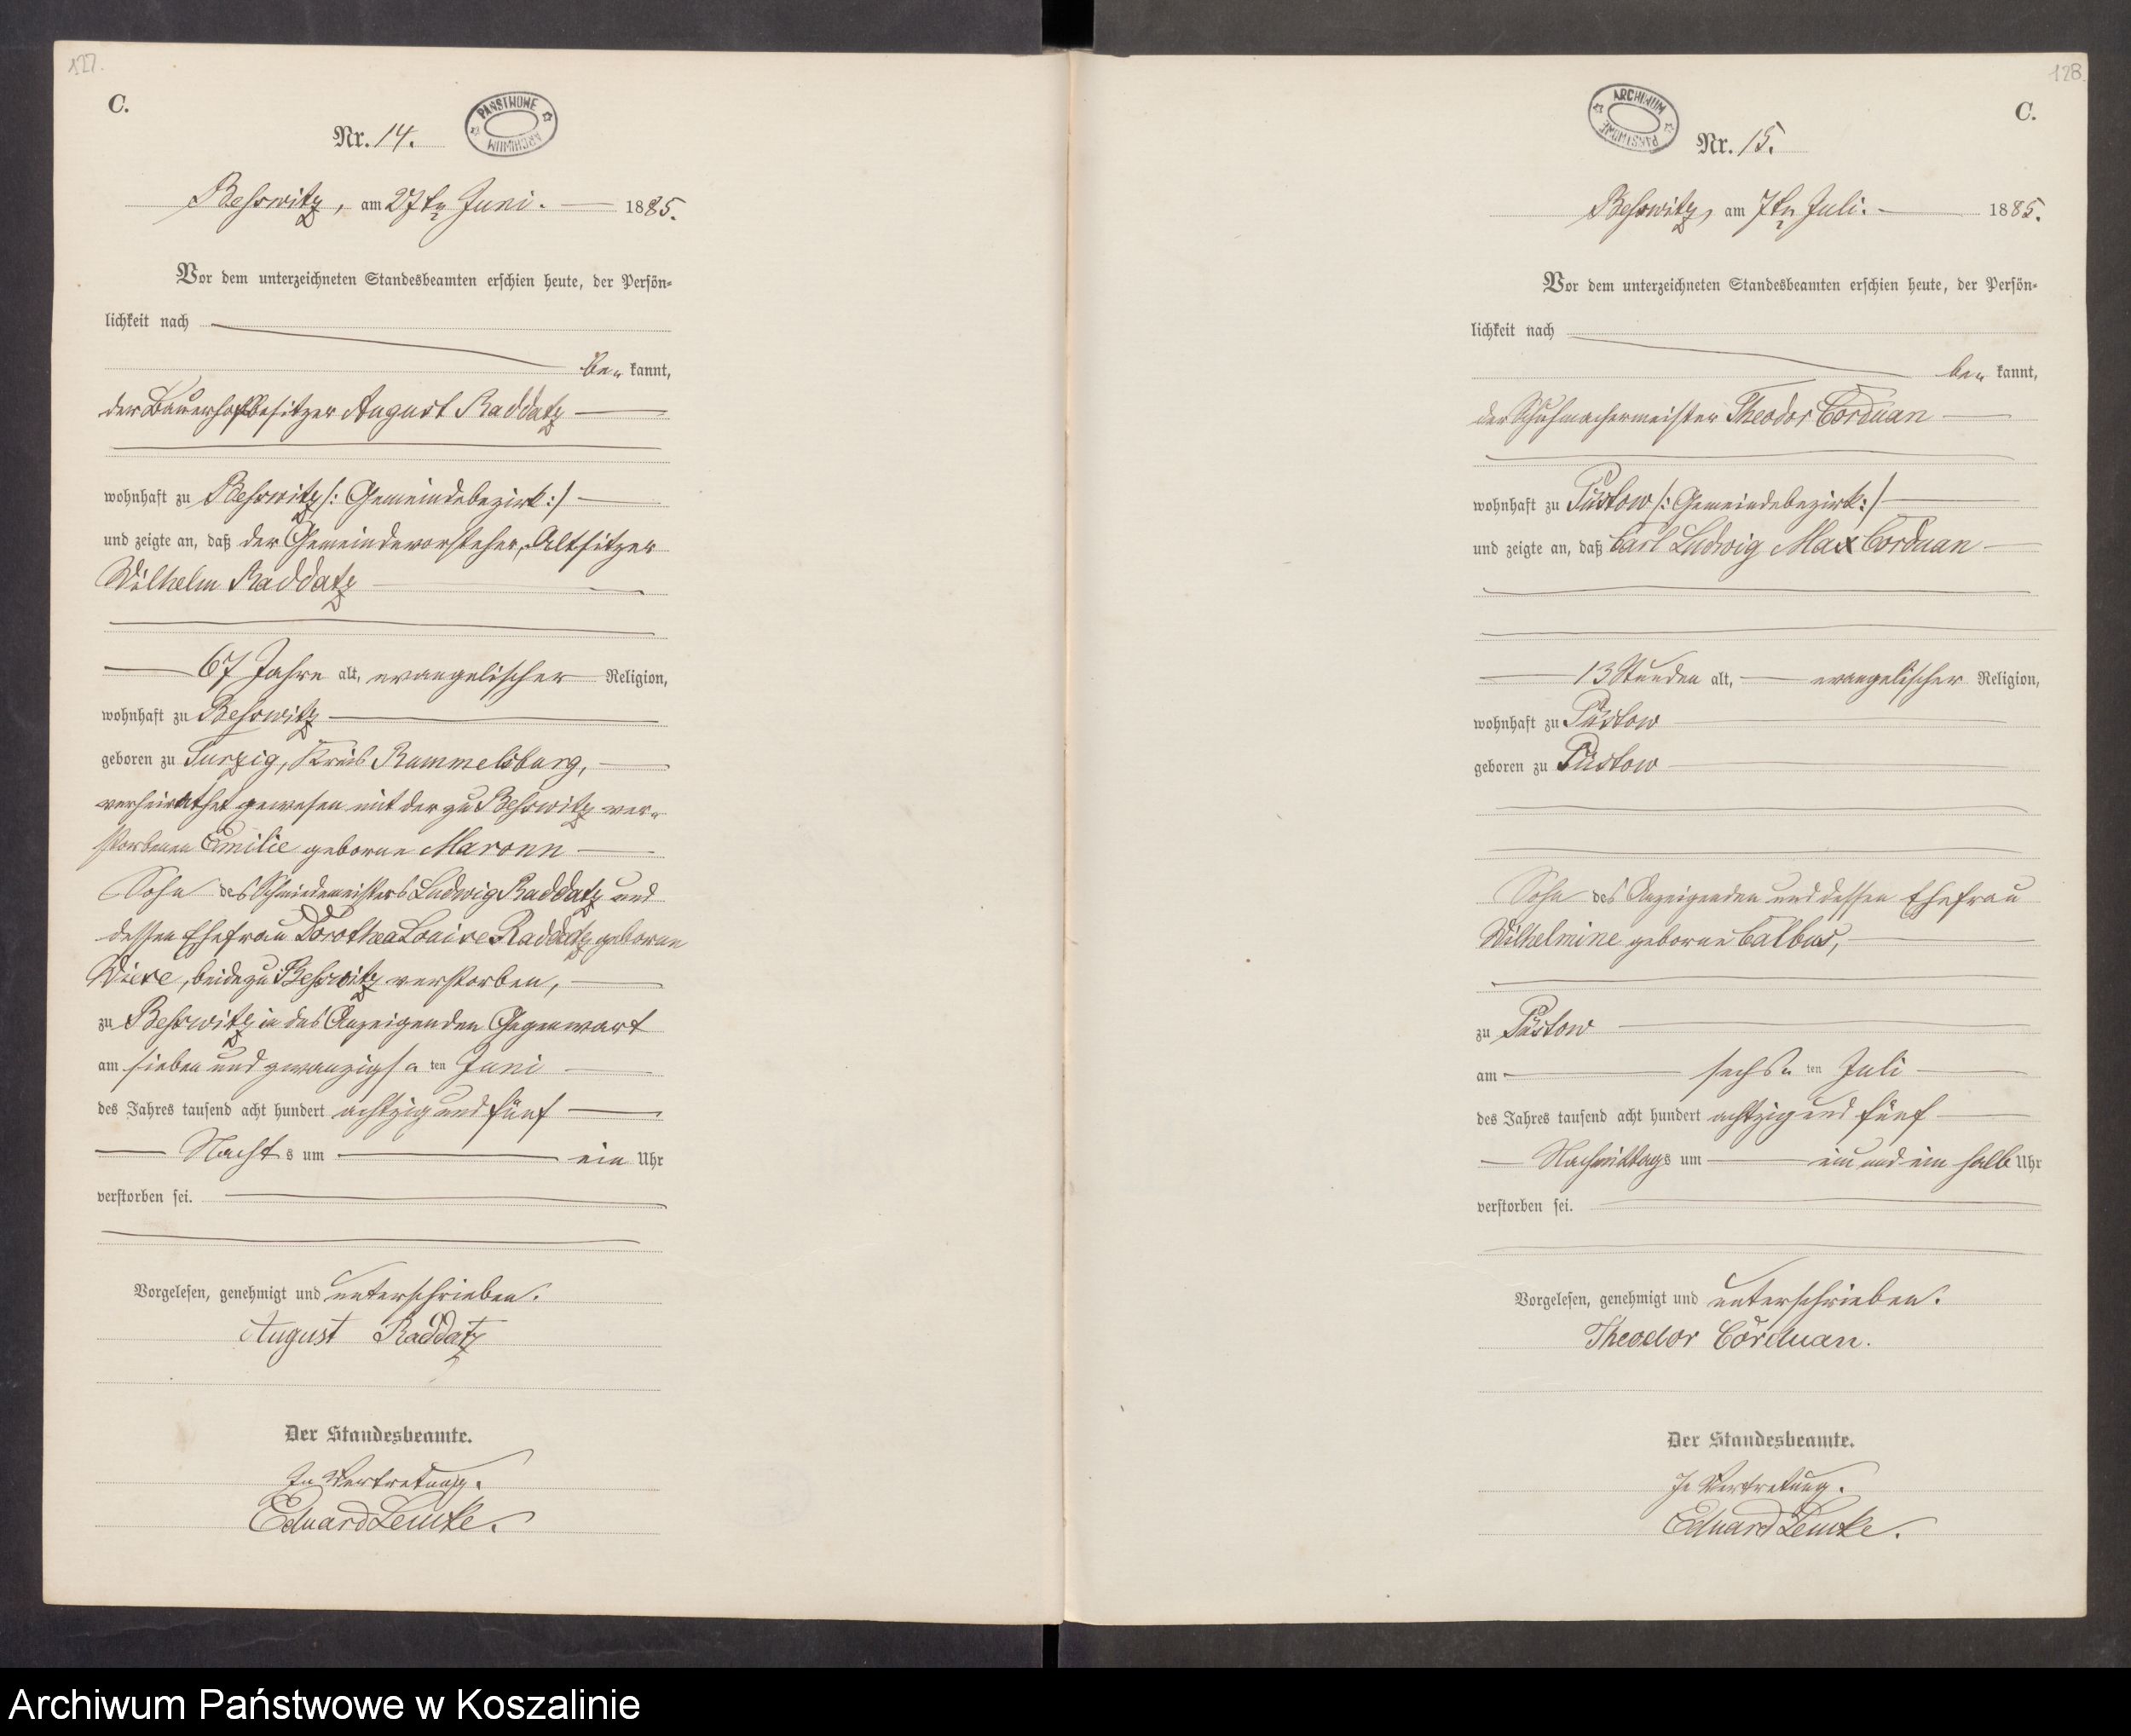 127.
C.
Nr. 14.
PAŃSTWOWE ARCHIWUM
Beßwitz, am 27tn Juni. 1885.
Vor dem unterzeichneten Standesbeamten erschien heute, der Persön-
lichkeit nach
be- kannt,
der Bauerhofbesitzer August Raddatz
wohnhaft zu Beßwitz /: Gemeindebezirk :/
und zeigte an, daß der Gemeindevorsteher, Altsitzer
Wilhelm Raddatz
67 Jahre alt, evangelischer Religion,
wohnhaft zu Beßwitz
geboren zu Turzig, Kreis Rummelsburg,
verheirathet gewesen mit der zu Beßwitz ver-
storbenen Emilie geborne Maronn
Sohn des Schmiedemeisters Ludwig Raddatz und
dessen Ehefrau Dorothea Raddatz geborne
beide zu Beßwitz verstorben,
zu Beßwitz in des Anzeigenden Gegenwart
am sieben und zwanzigs ten Juni
des Jahres tausend acht hundert achtzig und fünf
Nacht s um ein Uhr
verstorben sei.
Vorgelesen, genehmigt und unterschrieben.
August Raddatz
Der Standesbeamte.
In Vertretung.
Eduard Lemke.
128.
C.
ARCHIWUM PAŃSTWOWE
Nr. 15.
Beßwitz, am 7tn Juli. 1885.
Vor dem unterzeichneten Standesbeamten erschien heute, der Persön-
lichkeit nach
be- kannt,
der Schuhmachermeister Theodor Corduan
wohnhaft zu Püstow /: Gemeindebezirk :/
und zeigte an, daß Carl Ludwig Max Corduan
13 Stunden alt, evangelischer Religion,
wohnhaft zu Püstow
geboren zu Püstow
Sohn des Anzeigenden und dessen Ehefrau
Wilhelmine geborne Balbus,
zu Püstow
am sechs ten Juli
des Jahres tausend acht hundert achtzig und fünf
Nachmittags um ein und ein halb Uhr
verstorben sei.
Vorgelesen, genehmigt und unterschrieben.
Theodor Corduan.
Der Standesbeamte.
In Vertretung.
Eduard Lemke.
Archiwum Państwowe w Koszalinie